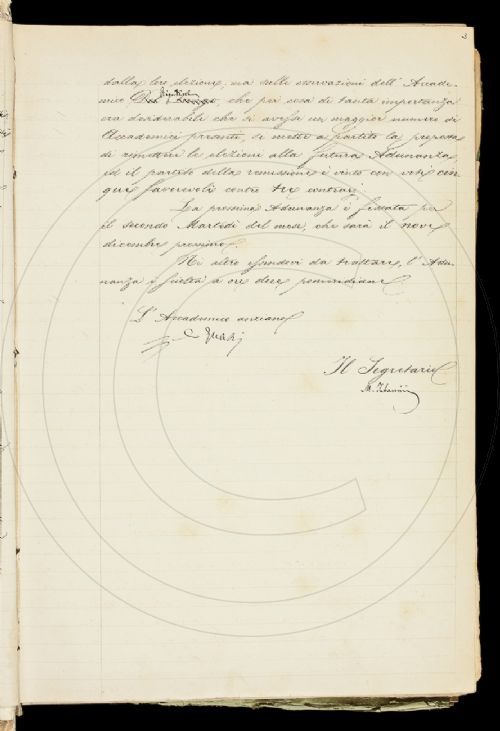 3
dalla loro elezione, ma sulle osservazioni dell'Accade-
mico che per cosa di tanta importanza
era desiderabile che si avesse un maggior numero di
Accademici presenti, si mette a partito la proposta
di rimettere le elezioni alla futura Adunanza,
ed il partito della remissione è vinto con voti cin
que favorevoli contro tre contrari.
La prossima Adunanza è fissata per
il secondo Martedì del mese, che sarà il nove
dicembre prossimo.
Nè altro essendovi da trattare, l'Adu-
nanza è sciolta a ore dieci pomeridiane
L'Accademico anziano
Il Segretario
M.